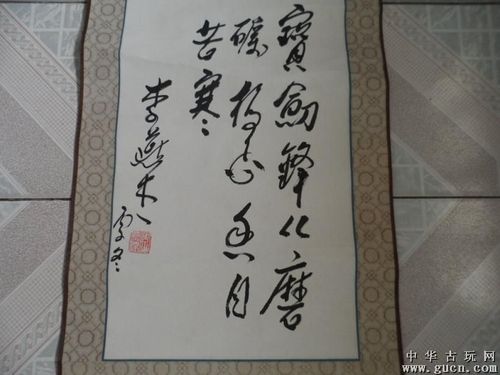 寶劍鋒从磨
礪梅花香自
苦寒
李燕杰
冬
中华古玩网
www.gucn.com